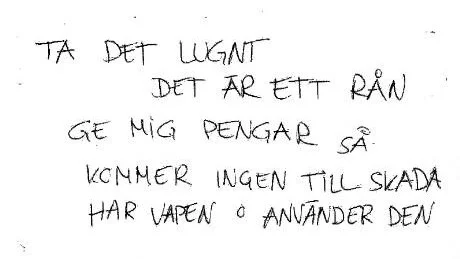 TA DET LUGNT
DET ÄR ETT RÅN
GE MIG PENGAR SÅ
KOMMER INGEN TILL SKADA
HAR VAPEN O ANVÄNDER DEN